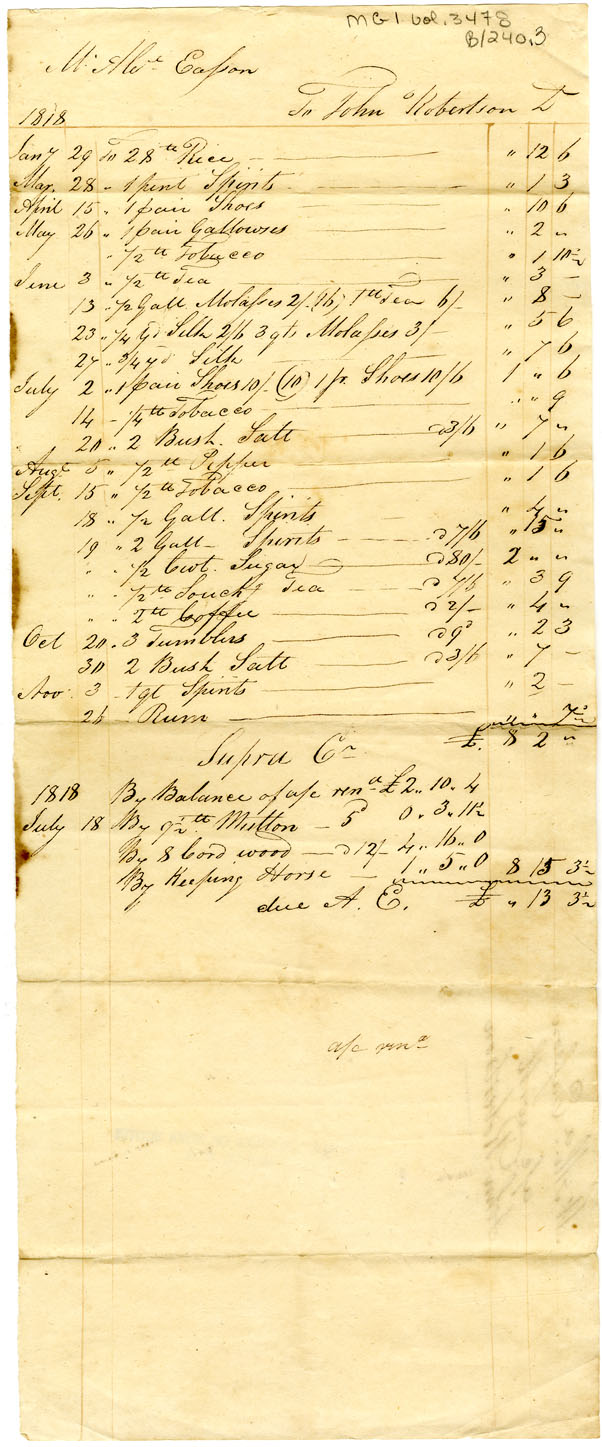 MG1 vol. 3478
B/240.3
Mr Alxr Eaſson
1818 To John Robertson Dr
Jany 29 To 28 lb Rice — " 12 6
Mar. 28 " 1 pint Spirits — " 1 3
April 15 " 1 pair Shoes " 10 6
May 26 " 1 pair Gallowses " 2 "
" 1/2 lb Tobacco " 1 10 1/2
June 3 " 1/2 lb Tea — " 3 —
13 " 1/2 Gall Molaſses 2/- (16) 1 lb Tea 6/- " 8 —
23 " 1/4 yd Silk 2/6 3 qts Molaſses 3/- " 5 6
27 " 3/4 yd Silk — " 7 6
July 2 " 1 pair Shoes 10/- (10) 1 pr. Shoes 10/6 1 " 6
14 - 1/4 lb Tobacco — " " 9
" 20 " 2 Bush. Salt — @ 3/6 " 7 "
Augt 5 " 1/2 lb Pepper — " 1 6
Sept. 15 " 1/2 lb Tobacco — " 1 6
18 " 1/2 Gall. Spirits — " 4 "
19 " 2 Gall — Spirits — @ 7/6 " 15 "
" " 1/2 Cwt. Sugar — @ 80/- 2 " "
" " 1/2 lb Souchg Tea — @ 7/6 " 3 9
" " 2 lb Coffee — @ 2/- " 4 "
Oct 20 " 3 Tumblers — @ 9d " 2 3
30 2 Bush Salt — @ 3/6 " 7 —
Nov. 3 - 1 qt Spirits — " 2 —
26 - Rum — " " 7 1/2
Supra Cr £. 8 2 "
1818 By Balance of a/c rend £2 " 10 " 4
July 18 By 9 1/2 lb Mutton — 5d 0 " 3 " 11 1/2
By 8 Cord wood — @ 12/- 4 " 16 " 0
By Keeping Horse — 1 " 5 " 0 8 15 3 1/2
due A. E. £ " 13 3 1/2
a/c rend